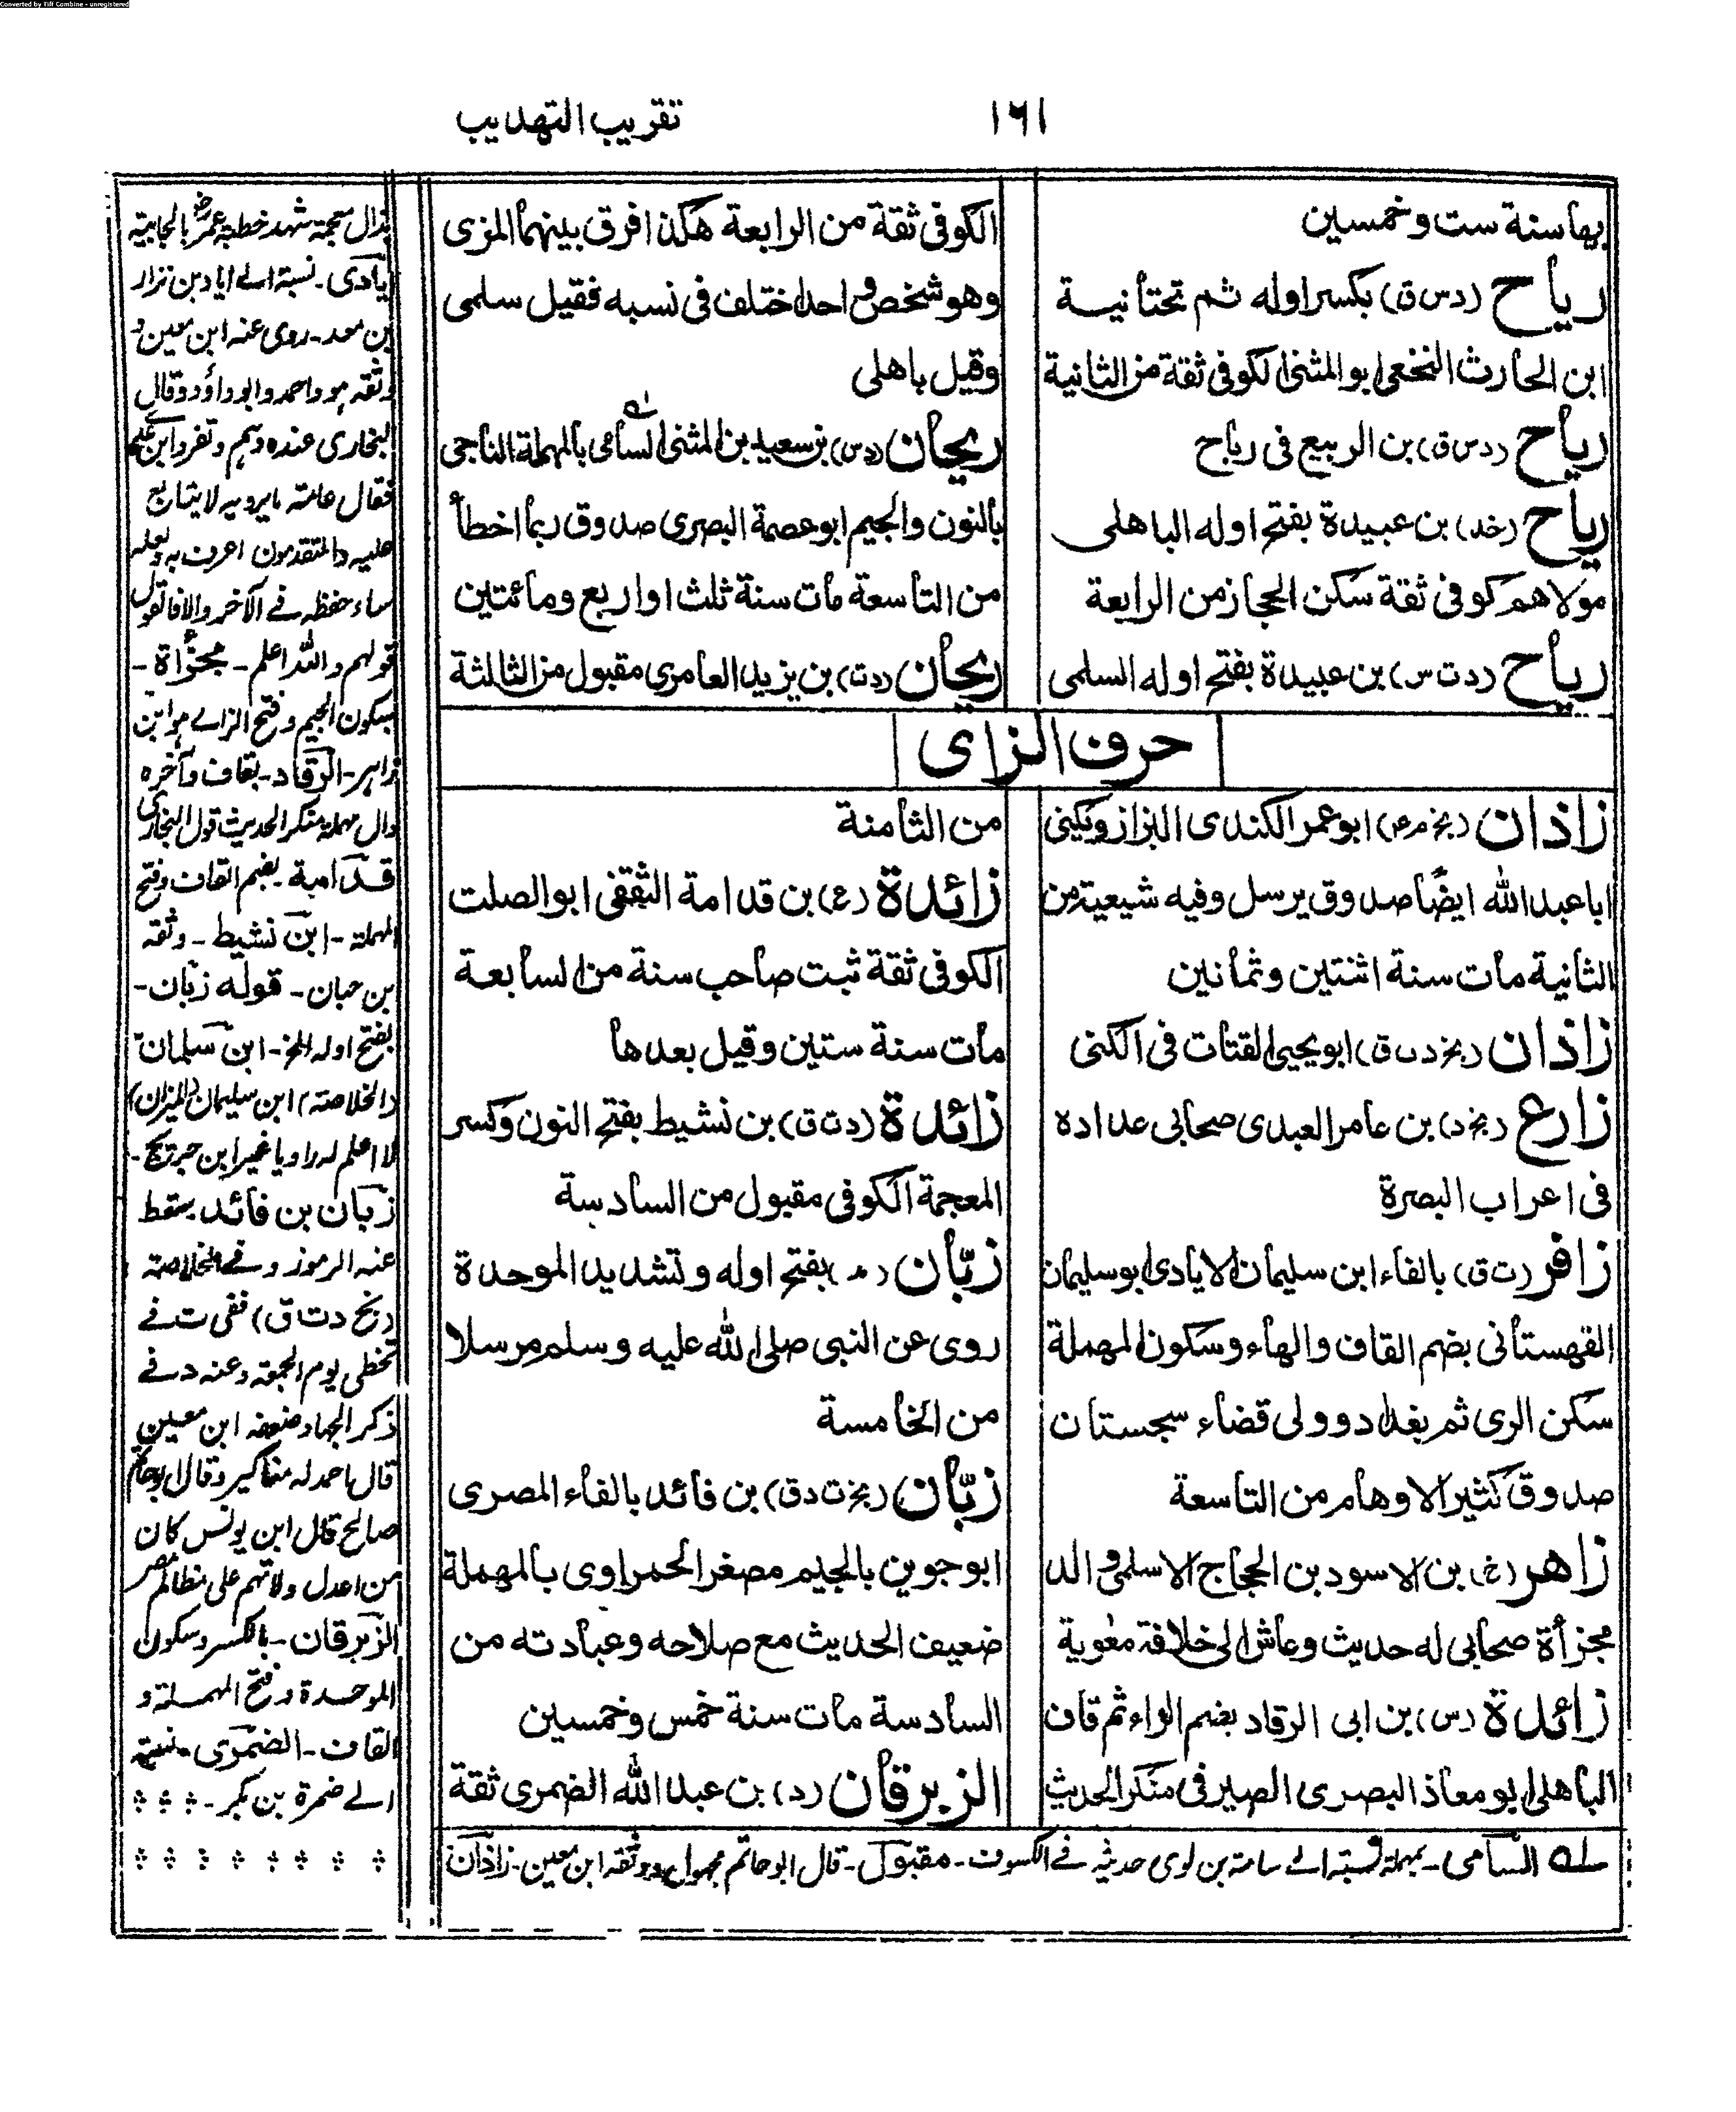 Converted by Tiff Combine - unregistered
١٦١
تقريب التهذيب
بها سنة ست وخمسين
رياح (د س ق) بكسر اوله ثم تحتانية
ابن الحارث النخعي ابو المثنى الكوفي ثقة من الثانية
رياح (د س ق) بن الربيع في رباح
رياح (خد) بن عبيدة بفتح اوله الباهلي
مولاهم كوفي ثقة سكن الحجاز من الرابعة
رياح (د ت س) بن عبيدة بفتح اوله السلمي
الكوفي ثقة من الرابعة هكذا فرق بينهما المزى
وهو شخص واحد اختلف في نسبه فقيل سلمي
وقيل باهلي
ريحان (د س) بن سعيد بن المثنى السامي بالمهملة الناجي
بالنون والجيم ابو عصمة البصرى صدوق ربما اخطأ
من التاسعة مات سنة ثلث او اربع ومائتين
ريحان (د ت) بن يزيد العامرى مقبول من الثالثة
حرف الزاى
زاذان (بخ م عه) ابو عمر الكندى البزاز ويكنى
ابا عبد الله ايضًا صدوق يرسل وفيه شيعية من
الثانية مات سنة اثنتين وثمانين
زاذان (بخ د ت ق) ابو يحيى القتات في الكنى
زارع (بخ د) بن عامر العبدى صحابي عداده
في اعراب البصرة
زافر (ت ق) بالفاء ابن سليمان الايادى ابو سليمان
القهستاني بضم القاف والهاء وسكون المهملة
سكن الرى ثم بغداد وولي قضاء سجستان
صدوق كثير الاوهام من التاسعة
زاهر (خ) بن الاسود بن الحجاج الاسلمي والد
مجزأة صحابي له حديث وعاش الى خلافة معوية
زائدة (س) بن ابي الرقاد بضم الراء ثم قاف
الباهلي ابو معاذ البصرى الصيرفي منكر الحديث
من الثامنة
زائدة (ع) بن قدامة الثقفي ابو الصلت
الكوفي ثقة ثبت صاحب سنة من السابعة
مات سنة ستين وقيل بعدها
زائدة (د ت ق) بن نشيط بفتح النون وكسر
المعجمة الكوفي مقبول من السادسة
زبّان (مد) بفتح اوله وتشديد الموحدة
روى عن النبي صلى الله عليه وسلم مرسلا
من الخامسة
زبّان (بخ ت د ق) بن فائد بالفاء المصرى
ابو جوين بالجيم مصغر الحمراوى بالمهملة
ضعيف الحديث مع صلاحه وعبادته من
السادسة مات سنة خمس وخمسين
الزبرقان (د) بن عبد الله الضمرى ثقة
له السامى - بمهملة نسبته الى سامة بن لوى حديثه فى الكسوف - مقبول - قال ابو حاتم مجهول ووثقه ابن معين - زاذان
بذال معجمة شهد خطبة عمر بالجابية
ايادى - نسبة الى اياد بن نزار
بن معد - روى عنه ابن معين و
وثقه هو واحمد وابو داؤد وقال
البخارى عنده وهم وتفرد ابن
فقال عامة ما يرويه لا يتابع
عليه والمتقدمون اعرف به ولعله
ساء حفظه فى الآخر والا فالقول
قولهم والله اعلم - مجزأة -
بسكون الجيم وفتح الزاى هو ابن
زاهر - الرقاد - بقاف وآخره
دال مهملة منكر الحديث قول البخارى
قدامة - بضم القاف وفتح
المهملة - ابن نشيط - وثقه
بن حبان - قوله زبان -
بفتح اوله الخ - ابن سلمان
(الخلاصة) ابن سليمان (الميزان)
لا اعلم له راويا غير ابن جريج -
زبان بن فائد سقط
عنه الرموز وفى الخلاصة
(بخ د ت ق) ففى ت فى
تخطى يوم الجمعة وعند د فى
ذكر الجهاد ضعفه ابن معين
قال احمد له مناكير وقال ابو حاتم
صالح قال ابن يونس كان
من اعدل ولاتهم على مظالم مصر
الزبرقان - بالكسر وسكون
الموحدة وفتح المهملة و
القاف - الضمرى - نسبة
الى ضمرة بن بكر -